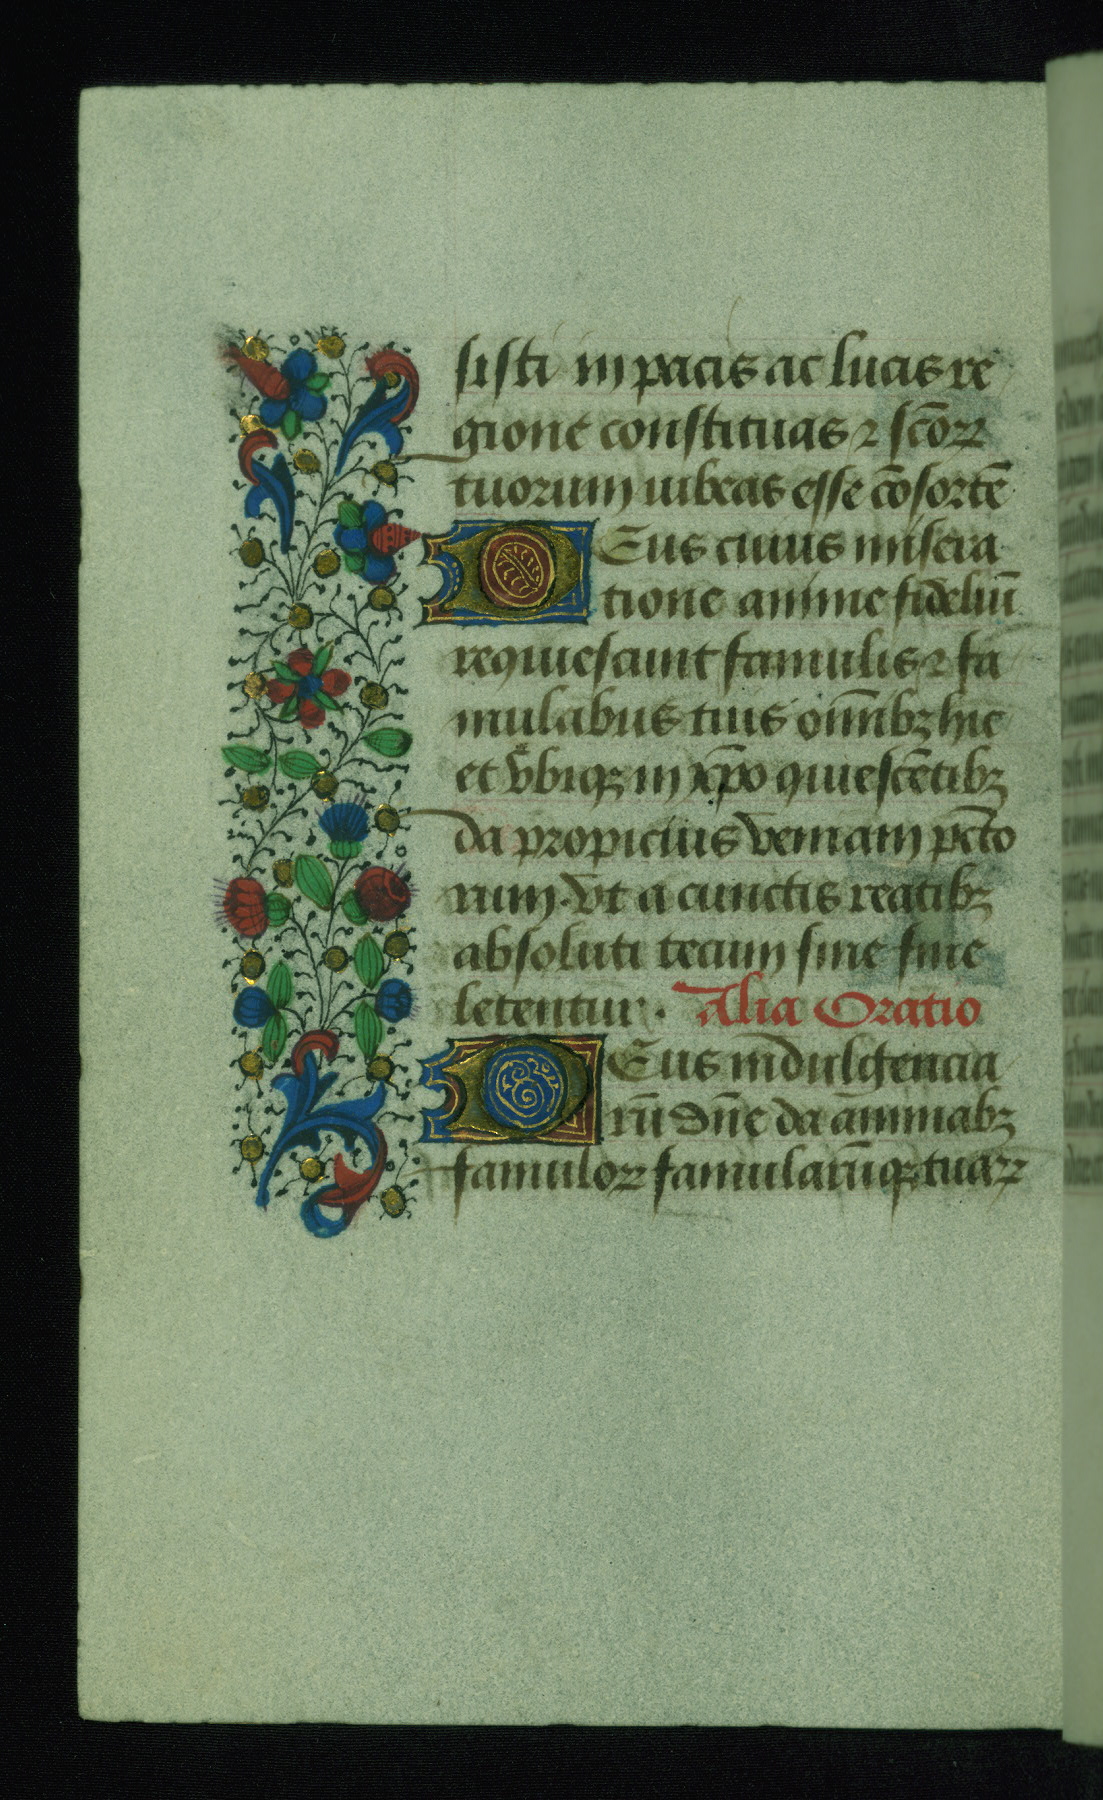 sisti in pacis ac lucis re
gione constituas ⁊ sc̄oꝝ
tuorum iubeas esse c̄osortē
DEus cuius misera
tione anime fideliū
requiescunt famulis ⁊ fa
mulabus tuis om̄ibꝫ hic
et vbiqꝫ in xp̄o quiescētibꝫ
da propicius veniam pcc̄to
rum. vt a cunctis reatibꝫ
absoluti tecum sine fine
letentur. Alia Oratio
DEus indulgencia
rū dn̄e da animabꝫ
famuloꝝ famularūqꝫ tuaꝝ